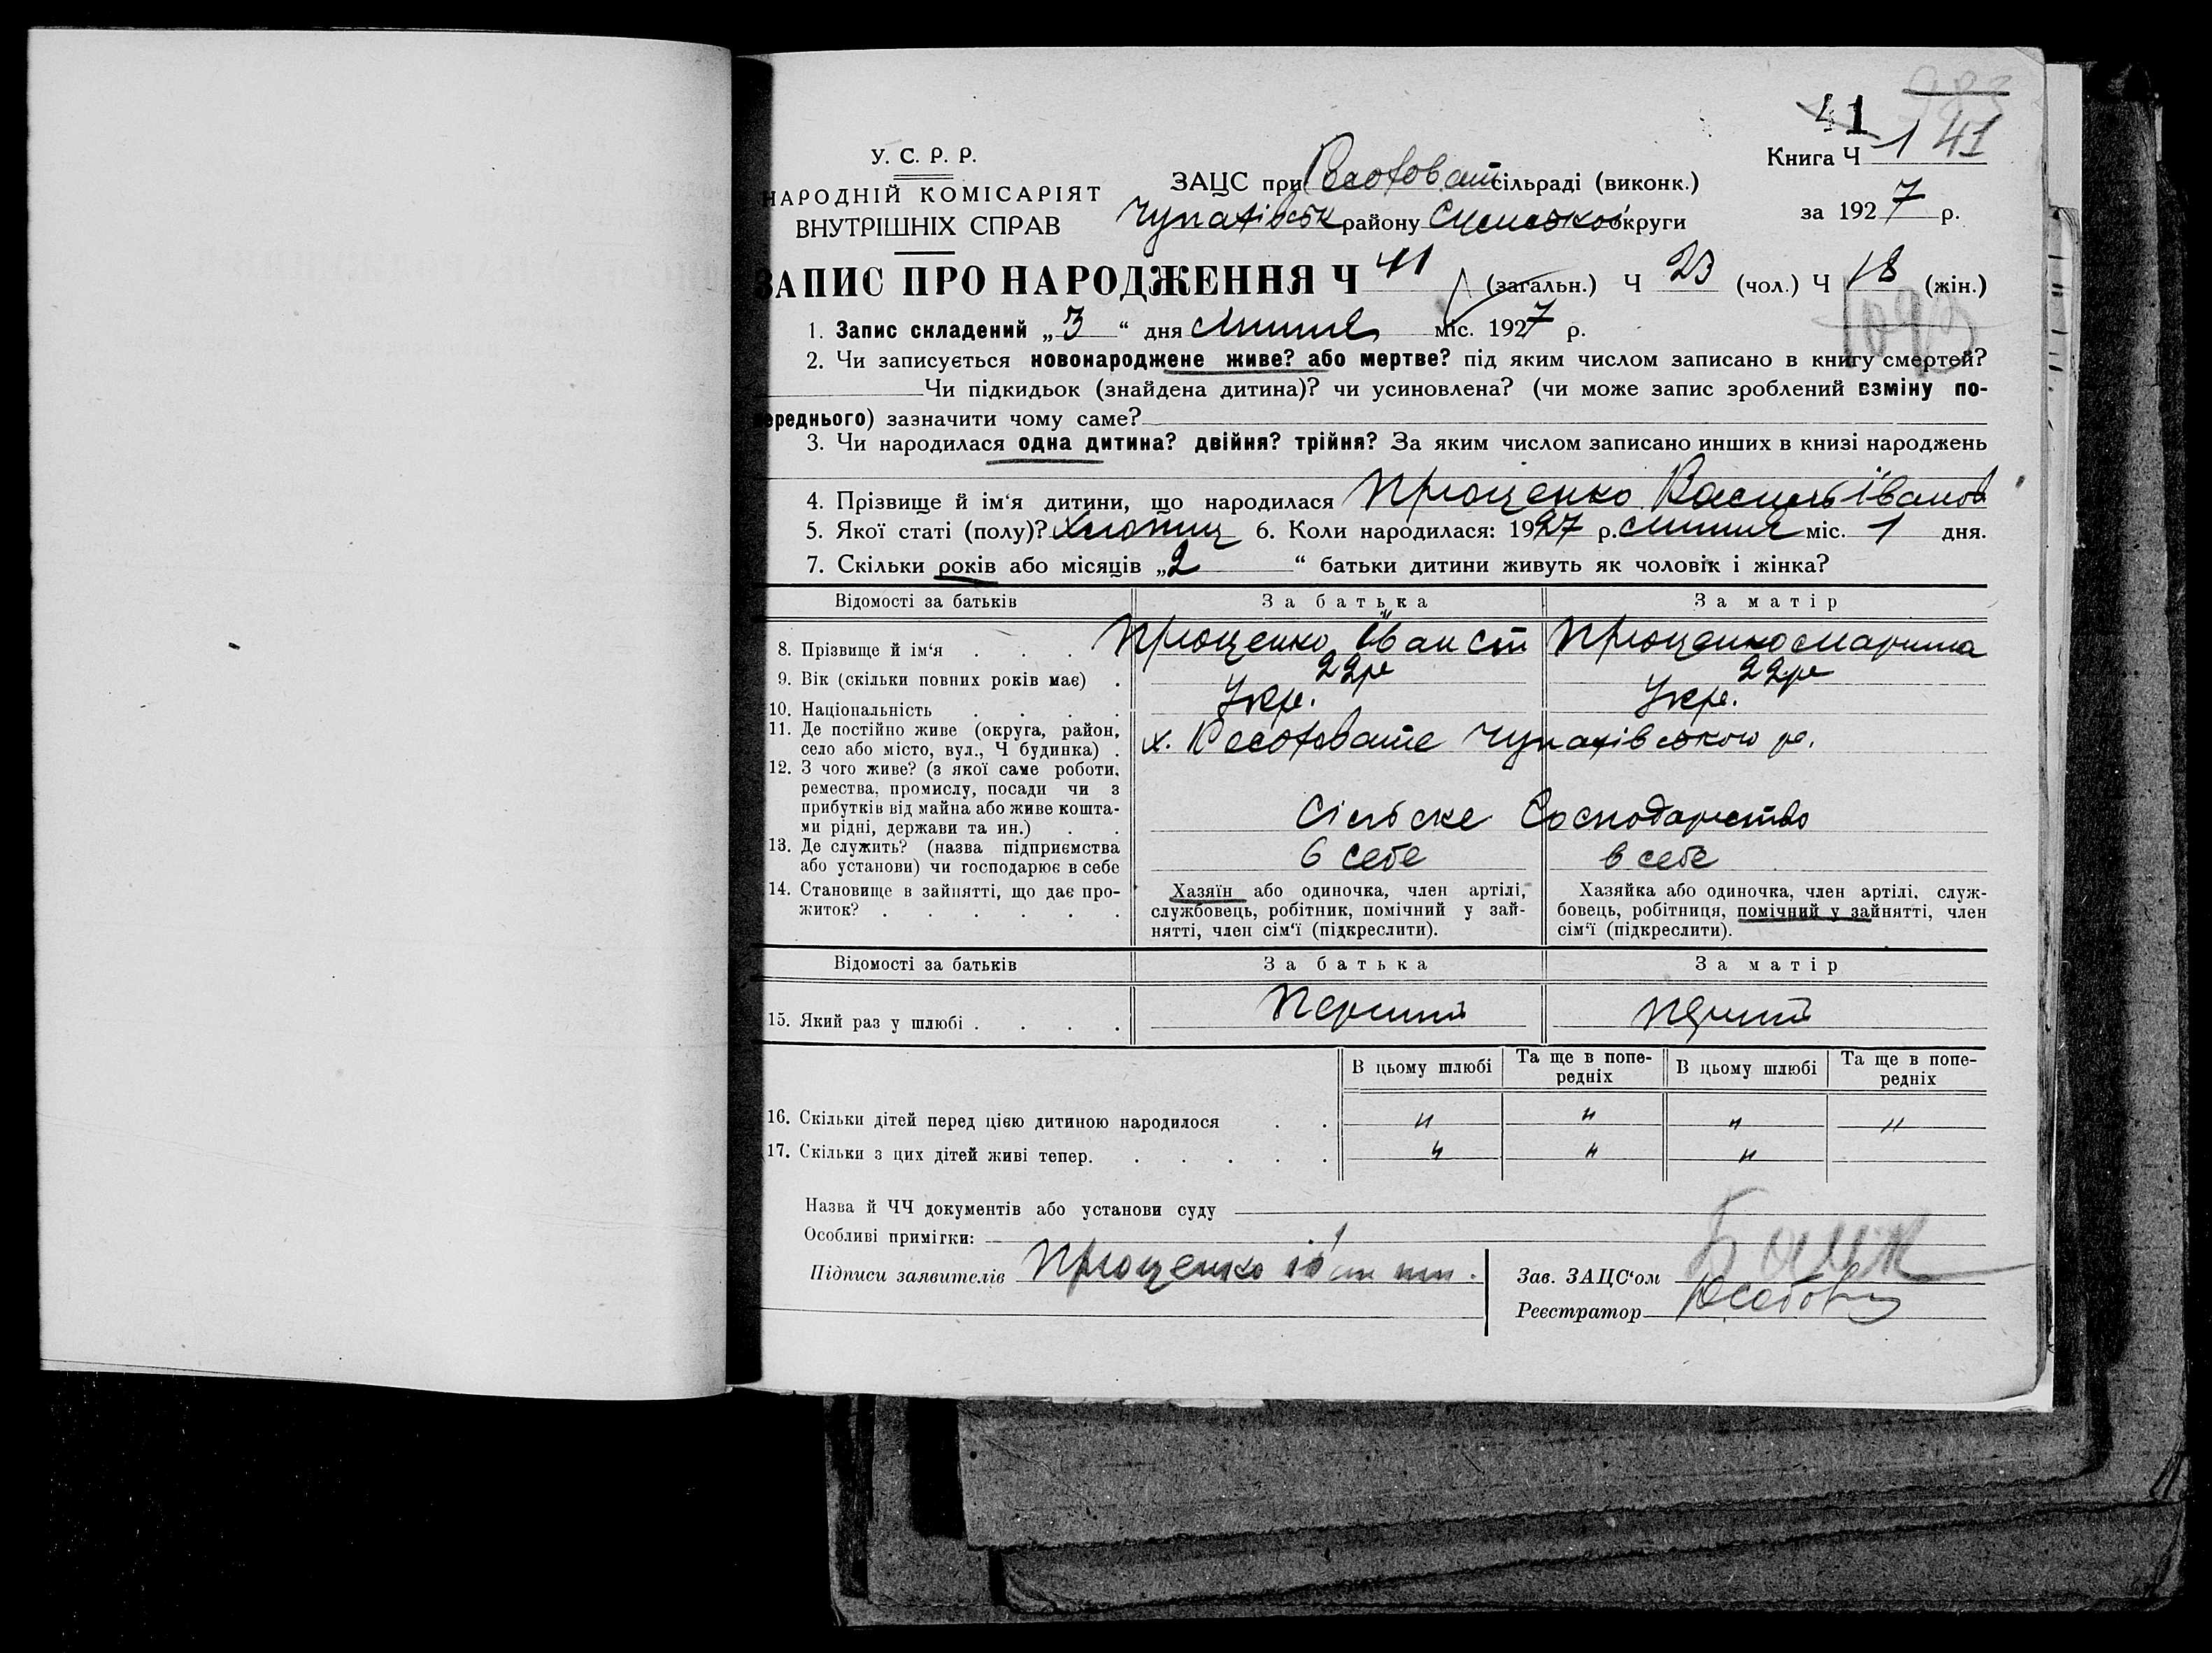 41
983
У. С. Р. Р.
Книга Ч 1 41
НАРОДНІЙ КОМІСАРІЯТ
ВНУТРІШНІХ СПРАВ
ЗАЦС при сільраді (виконк.)
Чупахівськ району Сумської округи
за 1927 р.
ЗАПИС ПРО НАРОДЖЕННЯ Ч 41 (загальн.) Ч 23 (чол.) Ч 18 (жін.)
1. Запис складений „3“ дня Липня міс. 1927 р.
2. Чи записується новонароджене живе? або мертве? під яким числом записано в книгу смертей?
Чи підкидьок (знайдена дитина)? чи усиновлена? (чи може запис зроблений взміну по-
переднього) зазначити чому саме?
3. Чи народилася одна дитина? двійня? трійня? За яким числом записано инших в книзі народжень
4. Прізвище й ім‘я дитини, що народилася Проценко Василь Іванов
5. Якої статі (полу)? Хлопец 6. Коли народилася: 1927 р. Липня міс. 1 дня.
7. Скільки років або місяців „2“ батьки дитини живуть як чоловік і жінка?
Відомості за батьків За батька За матір
8. Прізвище й ім‘я . . . Проценко Іван Ст Проценко Марина
9. Вік (скільки повних років має) . 22р 22р
10. Національність . . . . Укр. Укр.
11. Де постійно живе (округа, район,
село або місто, вул., Ч будинка) . х. Чупахівського р.
12. З чого живе? (з якої саме роботи,
ремества, промислу, посади чи з
прибутків від майна або живе кошта-
ми рідні, держави та ин.) . . Сільске Господарство
13. Де служить? (назва підприємства
або установи) чи господарює в себе в себе в себе
14. Становище в зайнятті, що дає про-
житок? . . . . . .
Хазяїн або одиночка, член артілі,
службовець, робітник, помічний у зай-
нятті, член сім‘ї (підкреслити).
Хазяйка або одиночка, член артілі, служ-
бовець, робітниця, помічний у зайнятті, член
сім‘ї (підкреслити).
Відомості за батьків За батька За матір
15. Який раз у шлюбі . . . . Перший Перший
В цьому шлюбі Та ще в попе-
редніх В цьому шлюбі Та ще в попе-
редніх
16. Скільки дітей перед цією дитиною народилося . . " " " "
17. Скільки з цих дітей живі тепер. . . . . . " " "
Назва й ЧЧ документів або установи суду
Особливі примігки:
Підписи заявителів Проценко
Зав. ЗАЦС‘ом
Реєстратор